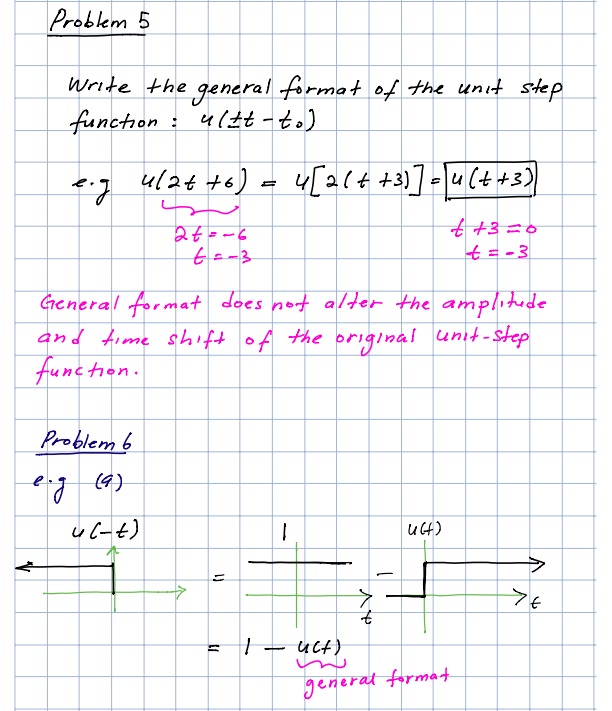 Problem 5
Write the general format of the unit step
function : u(±t - t₀)
e.g u(2t +6) = u[2(t +3)] = u(t+3)
2t = -6
t = -3
t +3 = 0
t = -3
General format does not alter the amplitude
and time shift of the original unit-step
function.
Problem 6
e.g (a)
u(-t)
1
u(t)
=
-
t
t
= 1 - u(t)
general format